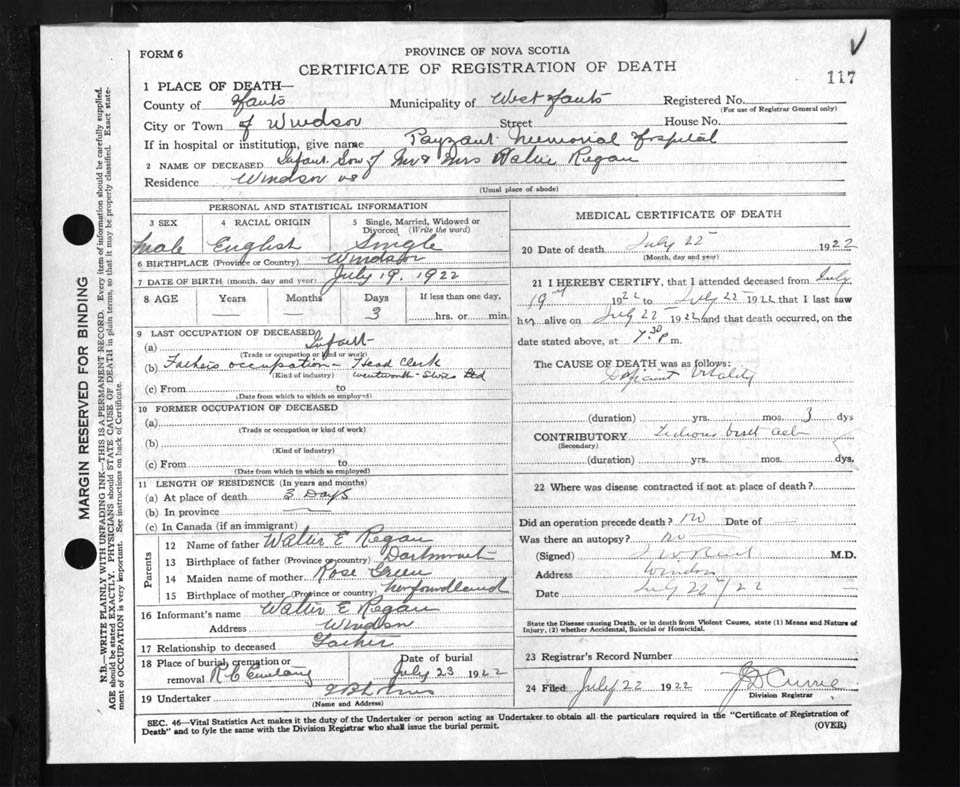 FORM 6
PROVINCE OF NOVA SCOTIA
CERTIFICATE OF REGISTRATION OF DEATH
117
1 PLACE OF DEATH—
County of Hants Municipality of West Hants Registered No.
(For use of Registrar General only)
City or Town of Windsor Street House No.
If in hospital or institution, give name Payzant Memorial Hospital
2 NAME OF DECEASED Infant Son of Mr & Mrs Walter Regan
Residence Windsor NS
(Usual place of abode)
PERSONAL AND STATISTICAL INFORMATION
3 SEX 4 RACIAL ORIGIN 5 Single, Married, Widowed or Divorced (Write the word)
Male English Single
6 BIRTHPLACE (Province or Country) Windsor
7 DATE OF BIRTH (month, day and year) July 19, 1922
8 AGE Years Months Days If less than one day,
— — 3 hrs. or min.
9 LAST OCCUPATION OF DECEASED
(a) Infant
(Trade or occupation or kind or work)
(b) Fathers occupation - Head Clerk
(Kind of industry) Wentworth Stores Ltd
(c) From to
(Date from which to which so employed)
10 FORMER OCCUPATION OF DECEASED
(a)
(Trade or occupation or kind of work)
(b)
(Kind of industry)
(c) From to
(Date from which to which so employed)
11 LENGTH OF RESIDENCE (In years and months)
(a) At place of death 3 Days
(b) In province —
(c) In Canada (if an immigrant)
Parents
12 Name of father Walter E Regan
13 Birthplace of father (Province or country) Dartmouth
14 Maiden name of mother Rose Green
15 Birthplace of mother (Province or country) Newfoundland
16 Informant's name Walter E Regan
Address Windsor
17 Relationship to deceased Father
18 Place of burial, cremation or removal R C Cemetary Date of burial July 23 1922
19 Undertaker
(Name and Address)
MEDICAL CERTIFICATE OF DEATH
20 Date of death July 22 1922
(Month, day and year)
21 I HEREBY CERTIFY, that I attended deceased from July
19th 1922 to July 22 1922 that I last saw
him alive on July 22 1922 and that death occurred, on the
date stated above, at 7.30 p m.
The CAUSE OF DEATH was as follows:
Deficient Vitality
(duration) yrs. mos. 3 dys
CONTRIBUTORY Tedious
(Secondary)
(duration) yrs. mos. dys.
22 Where was disease contracted if not at place of death?
Did an operation precede death? No Date of —
Was there an autopsy? No
(Signed) M.D.
Address Windsor
Date July 22/22
State the Disease causing Death, or in death from Violent Causes, state (1) Means and Nature of
Injury, (2) whether Accidental, Suicidal or Homicidal.
23 Registrar's Record Number
24 Filed July 22 1922 Currie
Division Registrar
SEC. 46—Vital Statistics Act makes it the duty of the Undertaker or person acting as Undertaker to obtain all the particulars required in the "Certificate of Registration of
Death" and to fyle the same with the Division Registrar who shall issue the burial permit.
(OVER)
MARGIN RESERVED FOR BINDING
N.B.—WRITE PLAINLY WITH UNFADING INK—THIS IS A PERMANENT RECORD. Every item of information should be carefully supplied.
AGE should be stated EXACTLY. PHYSICIANS should STATE CAUSE OF DEATH in plain terms, so that it may be properly classified. Exact statement of OCCUPATION is very important. See instructions on back of Certificate.